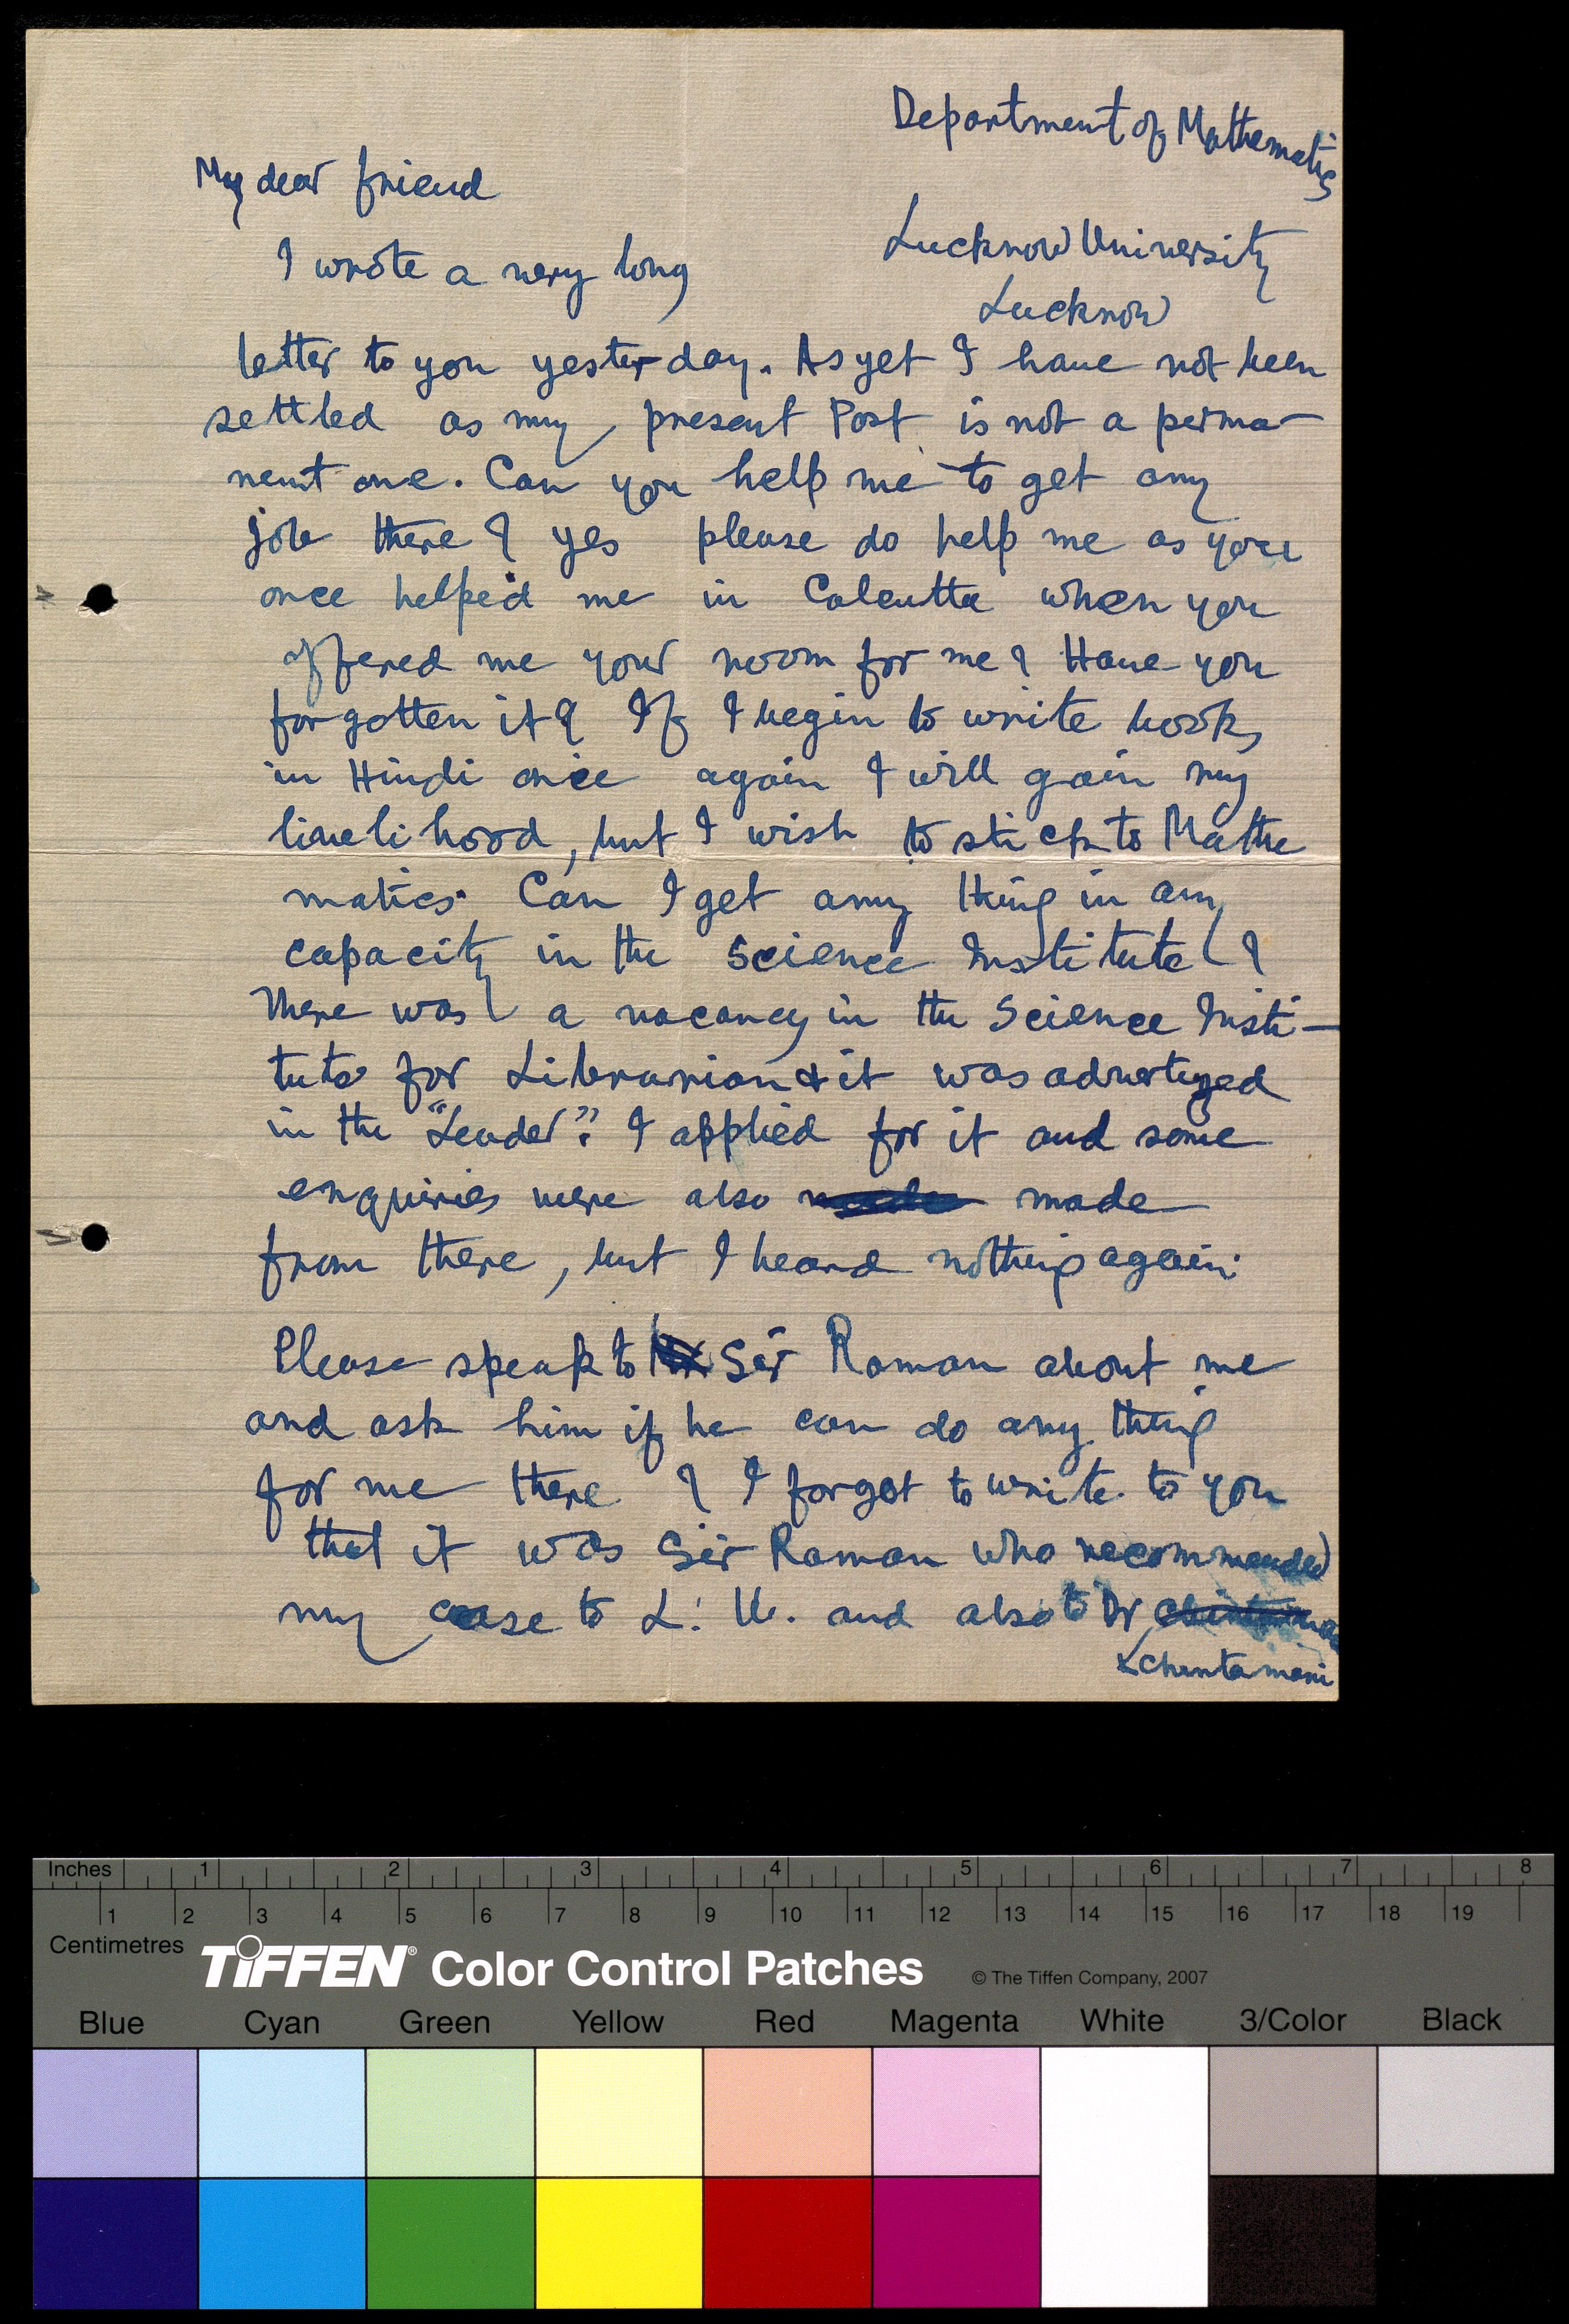 Department of Mathematics
My dear friend
Lucknow University
I wrote a very long
Lucknow
letter to you yesterday. As yet I have not been
settled as my present Post is not a perma-
nent one. Can you help me to get any
job there? yes please do help me as you
once helped me in Calcutta when you
offered me your room for me? Have you
forgotten it? If I begin to write books
in Hindi once again I will gain my
livelihood, but I wish to stick to Mathe
matics. Can I get any thing in any
capacity in the Science Institute?
There was a vacancy in the Science Insti-
tute for Librarian & it was advertized
in the "Leader". I applied for it and some
enquiries were also made
from there, but I heard nothing again.
Please speak to Sir Raman about me
and ask him if he can do any thing
for me there? I forgot to write to you
that it was Sir Raman who recommended
my case to L. U. and also to Dr
Chintamani
Inches 1 2 3 4 5 6 7 8
1 2 3 4 5 6 7 8 9 10 11 12 13 14 15 16 17 18 19
Centimetres
TIFFEN® Color Control Patches © The Tiffen Company, 2007
Blue Cyan Green Yellow Red Magenta White 3/Color Black